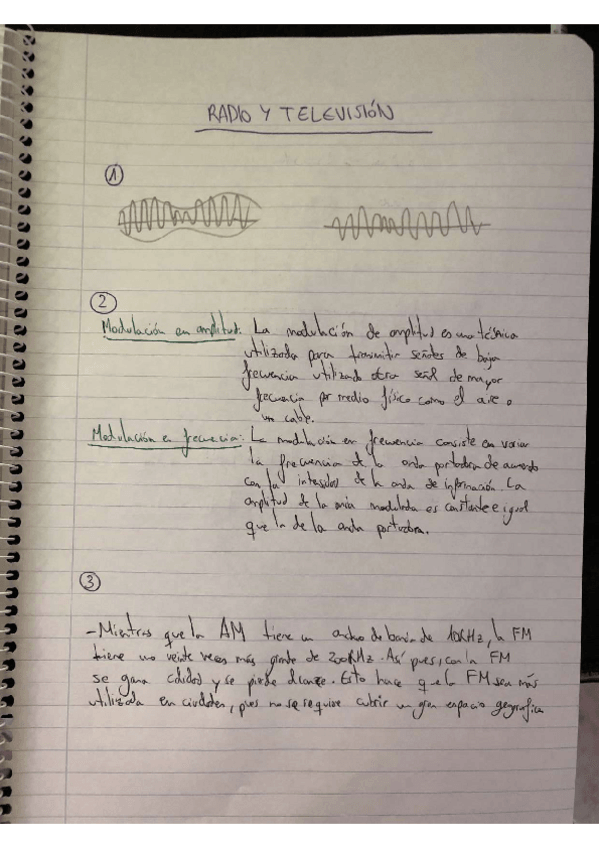 RADIO Y TELEVISIÓN
1
2
Modulación en amplitud: La modulación de amplitud es una técnica
utilizada para transmitir señales de baja
frecuencia utilizado otra señal de mayor
frecuencia por medio físico como el aire o
un cable.
Modulación en frecuencia: La modulación en frecuencia consiste en variar
la frecuencia de la onda portadora de acuerdo
con la intensidad de la onda de información. La
amplitud de la onda modulada es constante e igual
que la de la onda portadora.
3
- Mientras que la AM tiene un ancho de banda de 10KHz, la FM
tiene uno veinte veces más grande de 200KHz. Así pues, con la FM
se gana calidad y se pierde alcance. Esto hace que la FM sea más
utilizada en ciudades, pues no se requiere cubrir un gran espacio geográfico